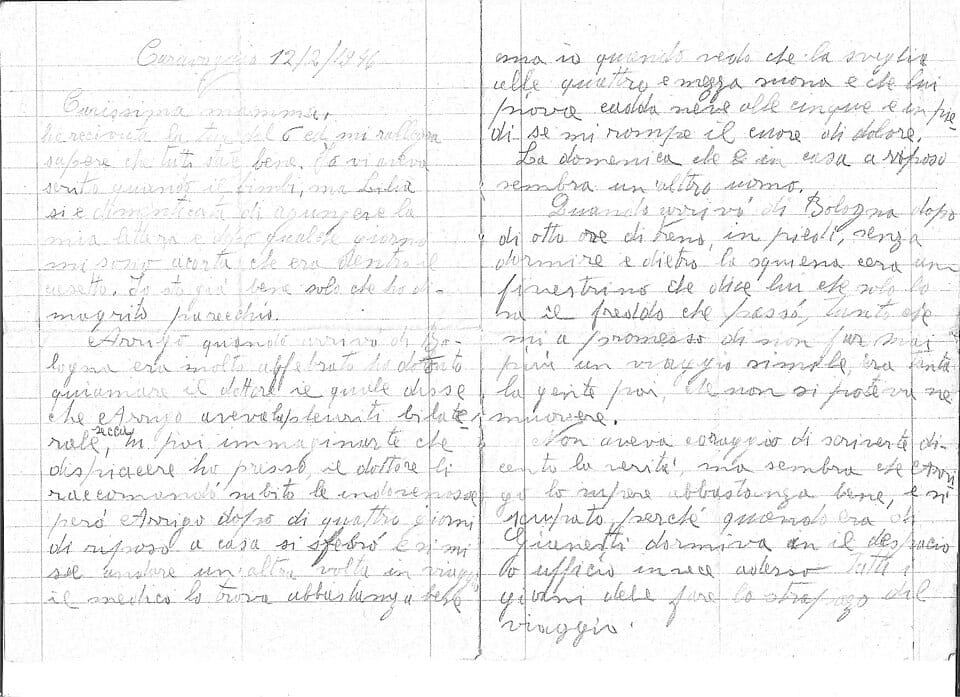 Caravaggio 12/2/1946
Carissima mamma,
ho recivuta la tua del 6 ed mi rallegra
sapere che tuti state bene. Io vi aveva
scrito quando il bimbi, ma Lilia
si è dimenticata di agiungere la
mia letera e dopo qualche giorno
mi sono acorta che era dentro il
casetto. Io sto già bene solo che ho di-
magrito parecchio.
Arrigo quando arrivó di Bo-
logna era molto affebrato ho dovuto
quiamare il dottore il quale disse
che Arrigo aveva la pleuriti bilate-
rale, secca, tu poi immaginarte che
dispiacere ho presso, il dottore li
raccomandó subito le indovenosse
peró Arrigo dopo di quattro giorni
di riposo a casa si sfebró e si mi
se andare un'altra volta in viaggio
il medico lo trova abbastanza bene
ma io quando vedo che la sveglia
alle quattro e mezza suona e che lui
piove cadda neve alle cinque è in pie-
di se mi rompe il cuore di dolore.
La domenica che è in casa a riposo
sembra un altro uomo.
Quando arrivó di Bologna dopo
di otto ore di treno, in piedi, senza
dormire e dietro la squiena cera un
finestrino che dice lui che solo lo
sa il freddo che passó, tanto che
mi a promesso di non far mai
piú un viaggio simile, era tanta
la gente poi, che non si poteva ne
muovere.
Non aveva coraggio di scriverte di-
cento la verità, ma sembra che Arri-
go lo supere abbastanza bene, è si
sciupato, perché quando era di
dormiva in il despacio
o ufficio invece adesso tutti i
giorni deve fare lo strapazo del
viaggio.